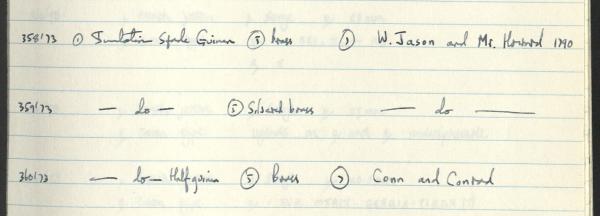 358'73 ① Imitation Spade Guinea ⑤ brass ⑦ W. Jason and Mr. Howard 1790
359'73 — do — ⑤ Silvered brass — do —
360'73 — do — Half guinea ⑤ Brass ⑦ Conn and Conrad